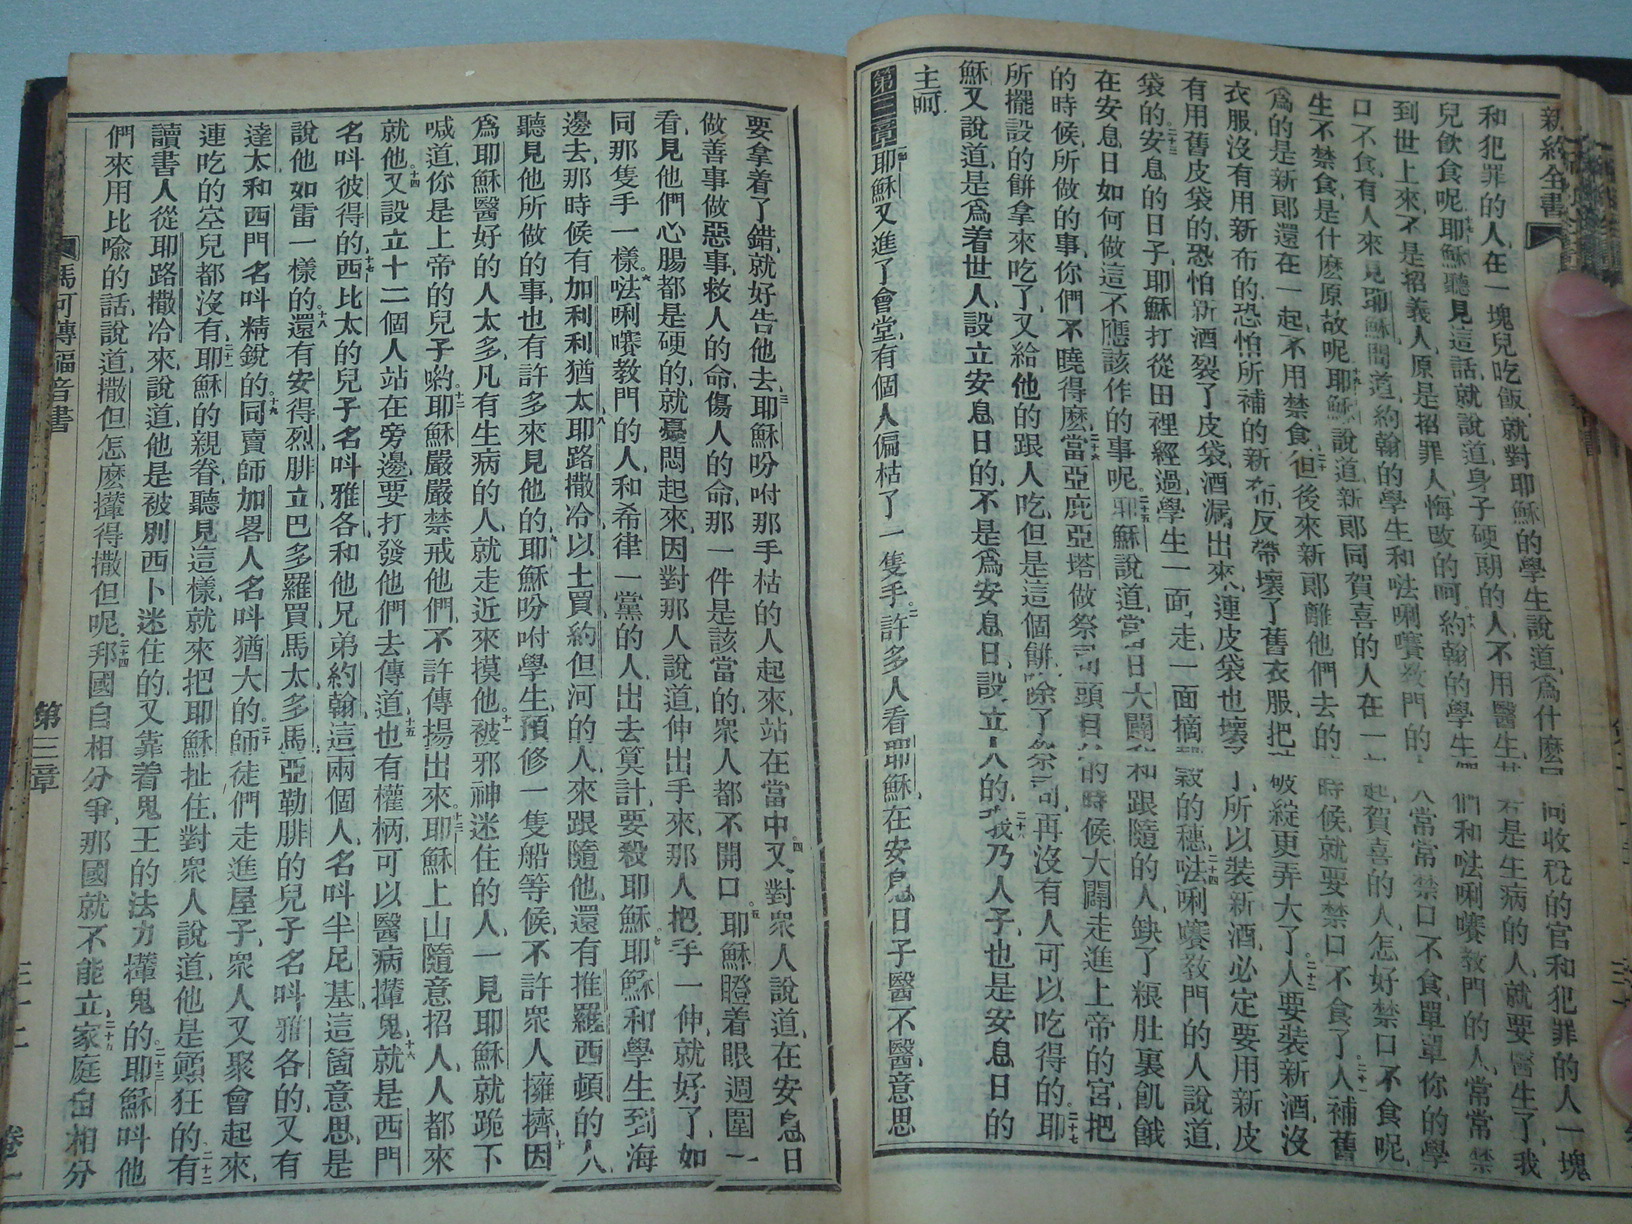 新約全書
和犯罪的人在一塊兒吃飯就對耶穌的學生說道爲什麼同收稅的官和犯罪的人一塊
兒飲食呢耶穌聽見這話就說道身子硬朗的人不用醫生有是生病的人就要醫生了我
到世上來不是招義人原是招罪人悔改的呵約翰的學生們和㕸唎㘔教門的人常常禁
口不食有人來見耶穌問道約翰的學生和㕸唎㘔教門的人常常禁口不食單單你的學
生不禁食是什麼原故呢耶穌說道新郎同賀喜的人在一起賀喜的人怎好禁口不食呢
爲的是新郎還在一起不用禁食但後來新郎離他們去的時候就要禁口不食了人補舊
衣服沒有用新布的恐怕所補的新布反帶壞了舊衣服把破綻更弄大了人要裝新酒沒
有用舊皮袋的恐怕新酒裂了皮袋酒漏出來連皮袋也壞了所以裝新酒必定要用新皮
袋的安息的日子耶穌打從田裡經過學生一面走一面摘穀的穗㕸唎㘔教門的人說道
在安息日如何做這不應該作的事呢耶穌說道當日大闢和跟隨的人缺了粮肚裏飢餓
的時候所做的事你們不曉得麼當亞庇亞塔做祭司頭目的時候大闢走進上帝的宮把
所擺設的餅拿來吃了又給他的跟人吃但是這個餅除了祭司再沒有人可以吃得的耶
穌又說道是爲着世人設立安息日的不是爲安息日設立人的我乃人子也是安息日的
主呵
第三章耶穌又進了會堂有個人偏枯了一隻手許多人看耶穌在安息日子醫不醫意思
要拿着了錯就好告他去耶穌吩咐那手枯的人起來站在當中又對眾人說道在安息日
做善事做惡事救人的命傷人的命那一件是該當的眾人都不開口耶穌瞪着眼週圍一
看見他們心腸都是硬的就憂悶起來因對那人說道伸出手來那人把手一伸就好了如
同那隻手一樣㕸唎㘔教門的人和希律一黨的人出去算計要殺耶穌耶穌和學生到海
邊去那時候有加利利猶太耶路撒冷以土買約但河的人來跟隨他還有推羅西頓的人
聽見他所做的事也有許多來見他的耶穌吩咐學生預修一隻船等候不許眾人擁擠因
爲耶穌醫好的人太多凡有生病的人就走近來摸他被邪神迷住的人一見耶穌就跪下
喊道你是上帝的兒子喲耶穌嚴嚴禁戒他們不許傳揚出來耶穌上山隨意招人人都來
就他又設立十二個人站在旁邊要打發他們去傳道也有權柄可以醫病攆鬼就是西門
名呌彼得的西比太的兒子名呌雅各和他兄弟約翰這兩個人名呌半尼基這箇意思是
說他如雷一樣的還有安得烈腓立巴多羅買馬太多馬亞勒腓的兒子名呌雅各的又有
達太和西門名呌精銳的同賣師加畧人名呌猶大的師徒們走進屋子眾人又聚會起來
連吃的空兒都沒有耶穌的親眷聽見這樣就來把耶穌扯住對眾人說道他是顚狂的有
讀書人從耶路撒冷來說道他是被別西卜迷住的又靠着鬼王的法力攆鬼的耶穌呌他
們來用比喻的話說道撒但怎麼攆得撒但呢邦國自相分爭那國就不能立家庭自相分
馬可傳福音書 第三章 三十二 卷一